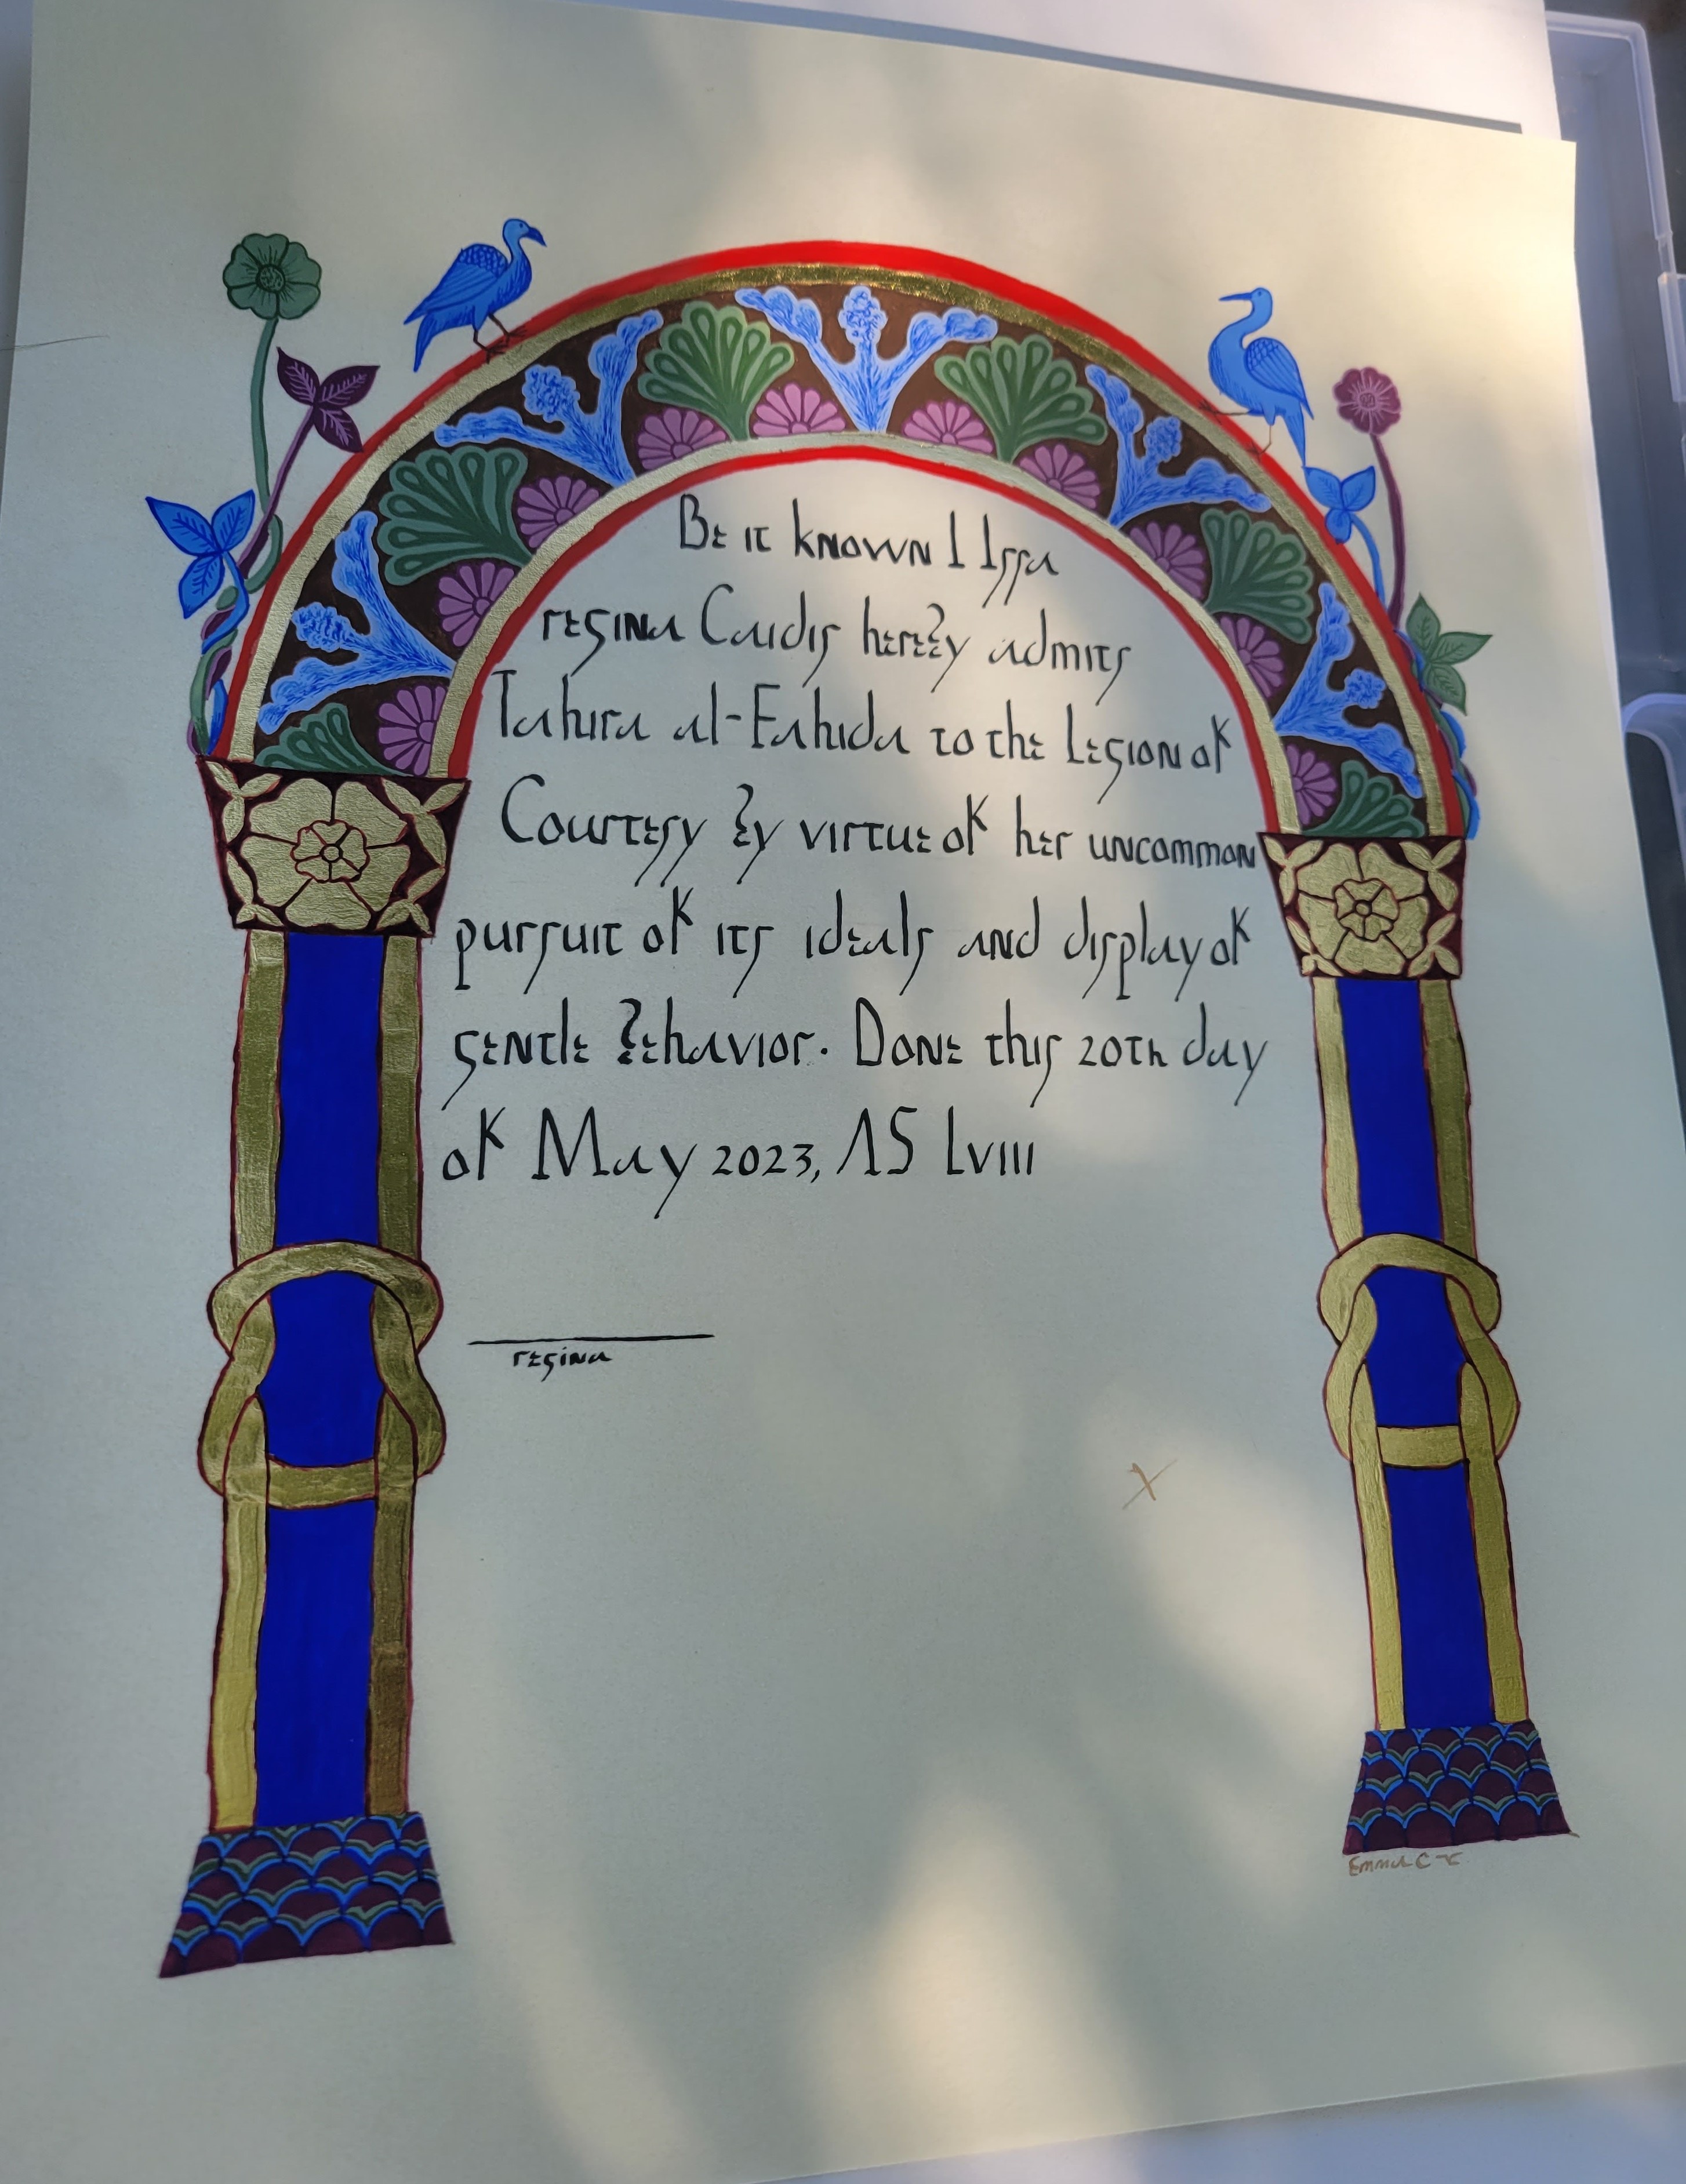 Be it known I Issa
regina Caidis hereby admits
Tahira al-Fahida to the Legion of
Courtesy by virtue of her uncommon
pursuit of its ideals and display of
gentle behavior. Done this 20th day
of May 2023, AS LVIII
regina
X
Emma C